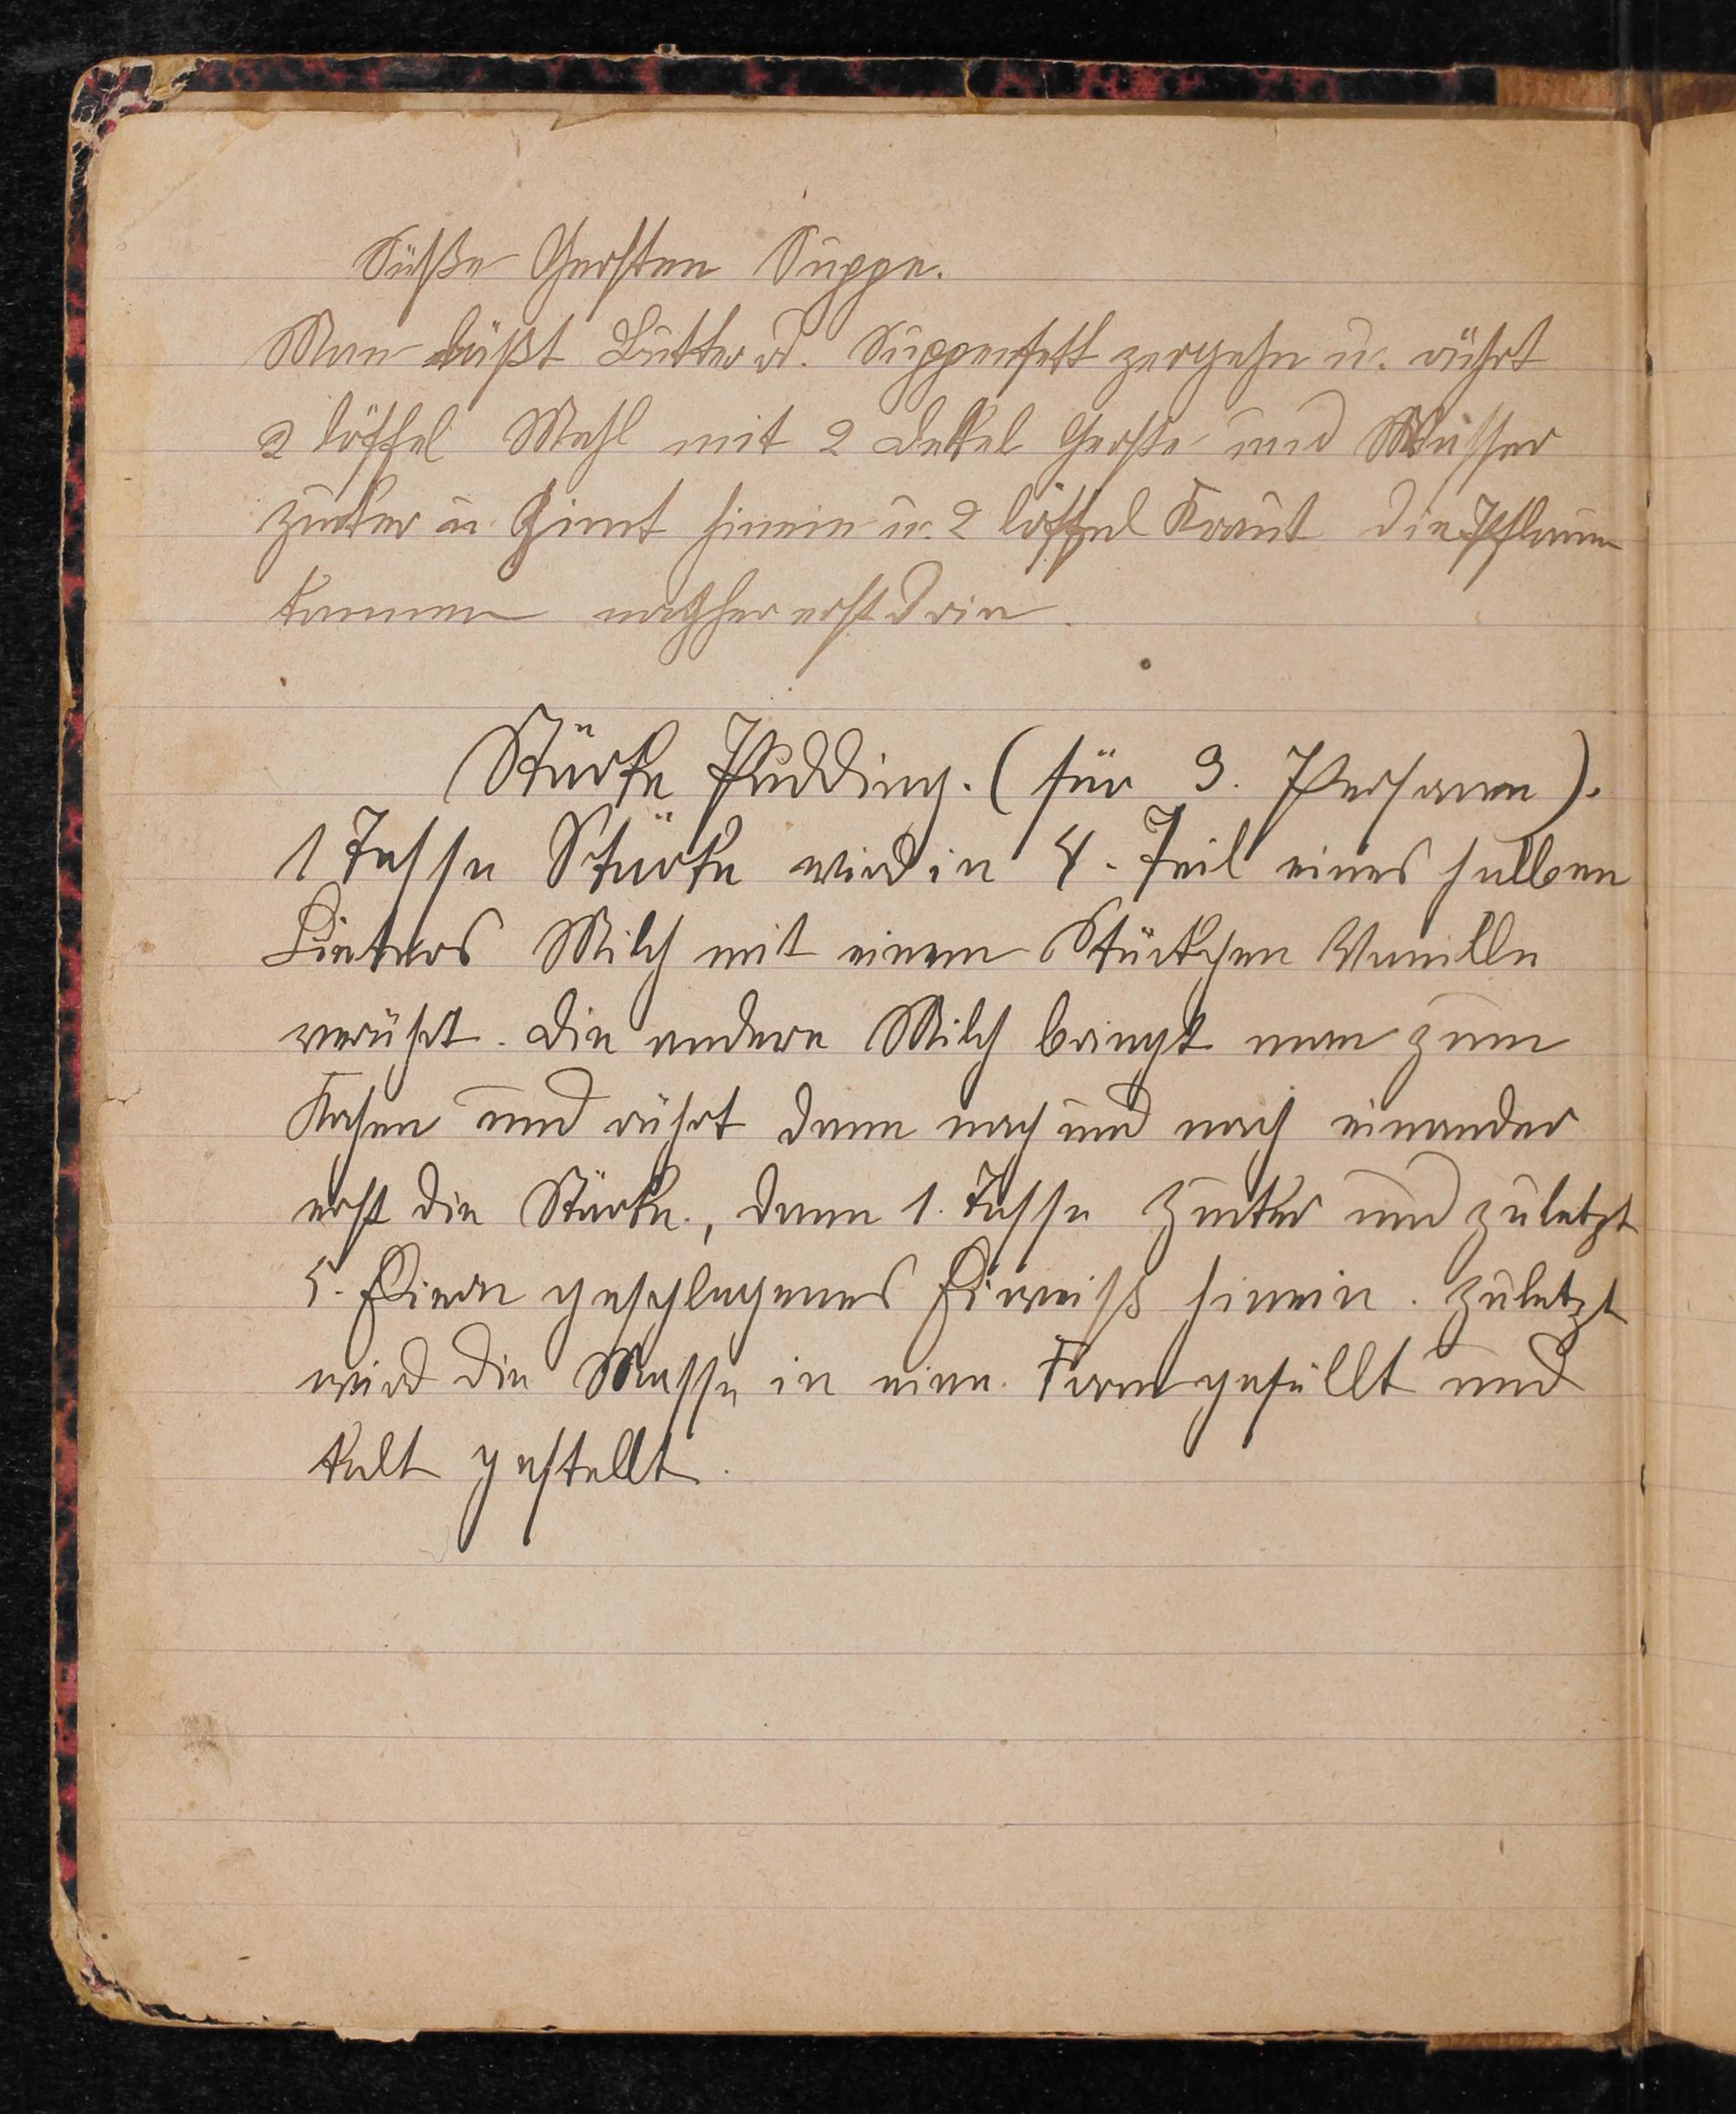 Süsße Gersten Suppe.
Man läßt Butter od. Suppenfett zergehn u. rührt
2 löffel Mehl mit 2 Dekel Gerste und Wasser
zucker u Zimt hinein u. 2 löffel Kraut die Pflaum
kommen nachher erst drin.
Stärke Pudding. (für 3. Personen).
1 Tasse Stärke wird in 4. Teil eines halben
Lieters Milch mit einem Stückchen Vanille
verührt. Die andere Milch bringt man zum
Kochen und rührt dann nach und nach einander
erst die Stärke., dann 1. Tasse Zucker und zuletzt
5. Eiern geschlagenes Eiweiß hinein. Zuletzt
wird die Masse in eine. Form gefüllt und
kalt gestellt.